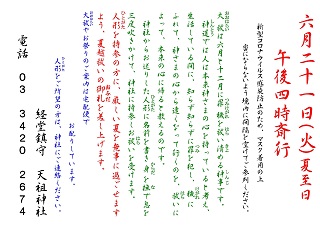 六月二十一日（火）夏至日
午後四時斎行
新型コロナウイルス感染防止のため、マスク着用の上
密にならないよう境内に間隔を空けてご参列ください。
大祓は六月と十二月に罪穢を祓い清める神事です。
神道では人は本来神さまの心を持っていると考え、
生活している間に、知らず知らずに罪を犯し、穢に
ふれて、神さまの心から遠くなって行くのを、祓に
よって、本来の心に帰ると教えるのです。
神社からお送りした人形に名前を書き身を撫で息を
三度吹きかけて、神社に持参して祓いを受けます。
人形を持参の方に、厳しい夏を無事に過ごせます
よう、夏越祓いの御札を差し上げます。
大祓やお祭りのご案内は宅配便で
お配りしています。
人形をご希望の方は、神社にご連絡ください。
経堂鎮守 天祖神社
電話 03 3420 2674